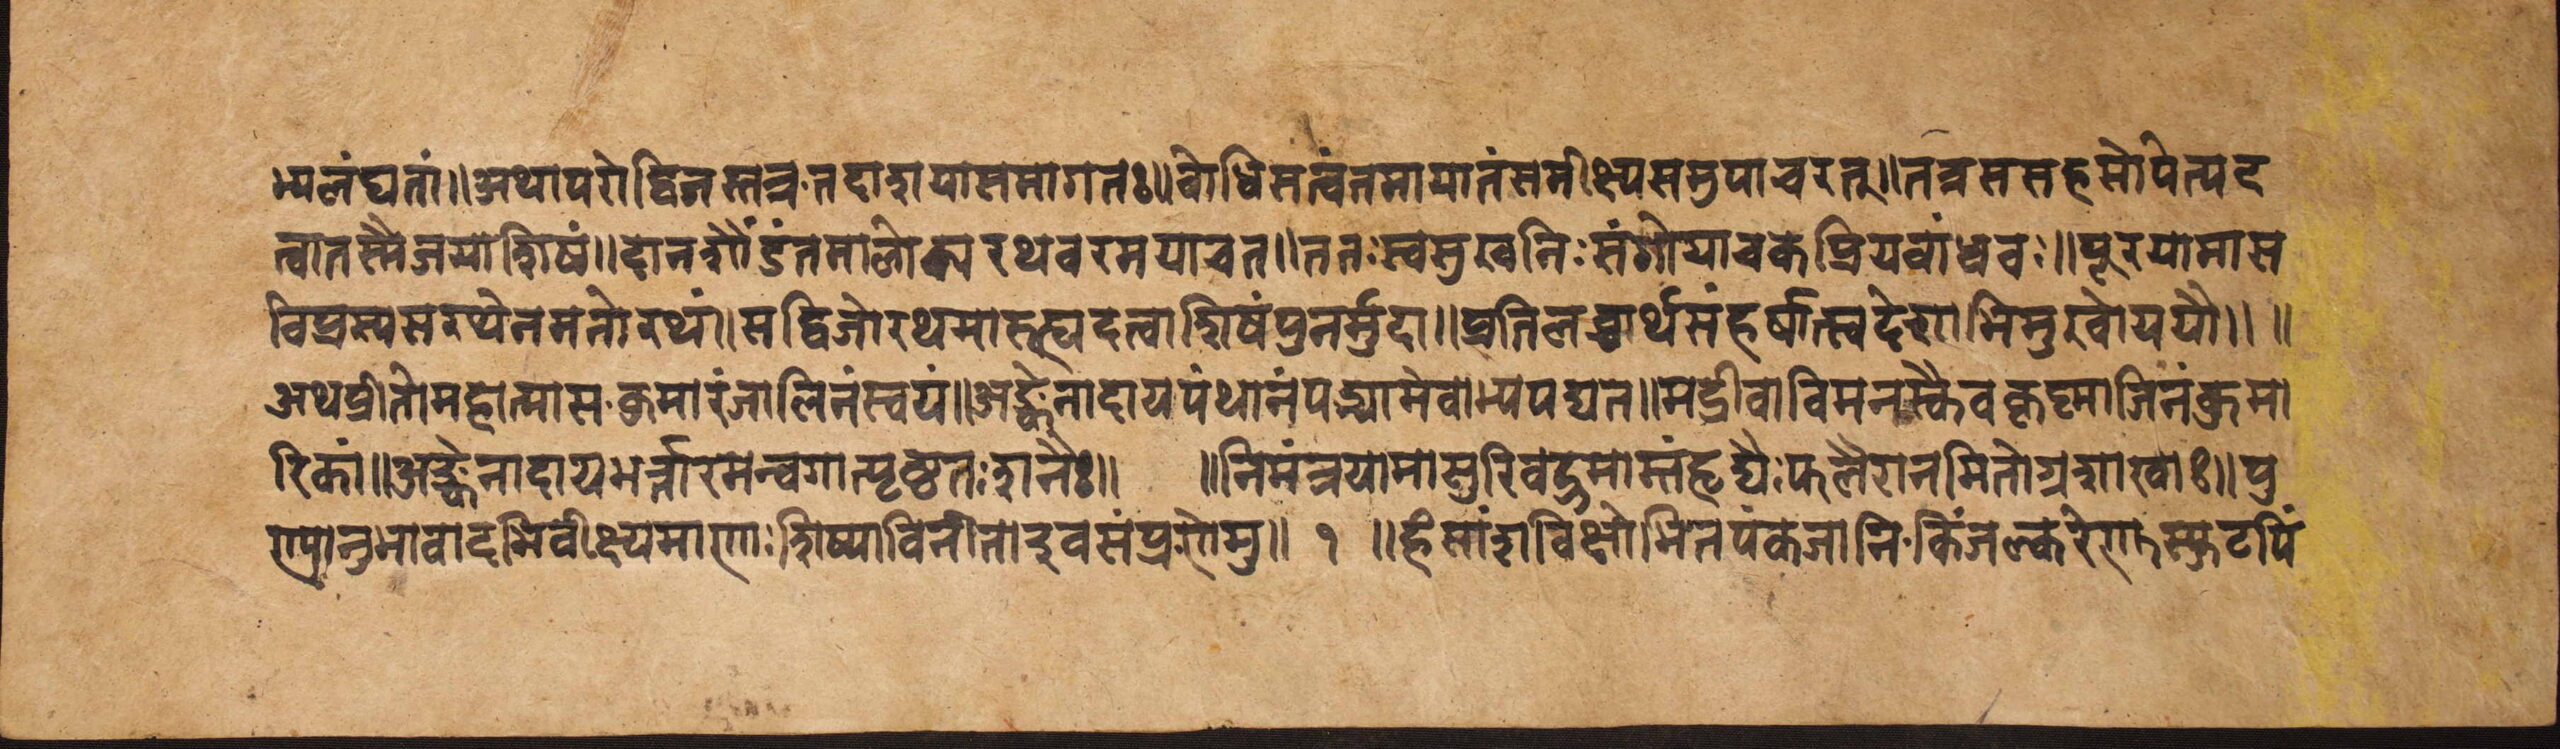 भ्यलंघतां॥अथापरोद्विजस्तत्र·तदाशयासमागतः॥बोधिसत्वंतमायातंसमीक्ष्यसमुपाचरत्॥तत्रससहसोपेत्यद
त्वातस्मैजयाशिषं॥दानशौंडंतमालोक्यरथवरमयाचत॥ततःस्वसुखनिःसंगोयाचकप्रियबांधवः॥पूरयामास
विप्रस्यसरथेनमनोरथं॥सद्विजोरथमारुह्यदत्वाशिषंपुनर्मुदा॥प्रतिलब्धार्थसंहर्षात्स्वदेशाभिमुखोययौ॥ ॥
अथप्रीतोमहात्मास·कुमारंजालिनंस्वयं॥अङ्केनादायपंथानंपद्भ्यामेवाभ्यपद्यत॥मद्रीवाविमनस्कैवकृष्माजिनंकुमा
रिकां॥अङ्केनादायभर्त्तारमन्वगात्पृष्ठतःशनैः॥ ॥निमंत्रयामासुरिवद्रुमास्तंहृद्यैःफलैरानमिताग्रशाखाः॥पु
ण्यानुभावादभिवीक्ष्यमाणाःशिष्याविनीताइवसंप्रणेमु॥ १ ॥हंसांशविक्षोभितपंकजानि·किंजल्करेणुस्फुटपिं